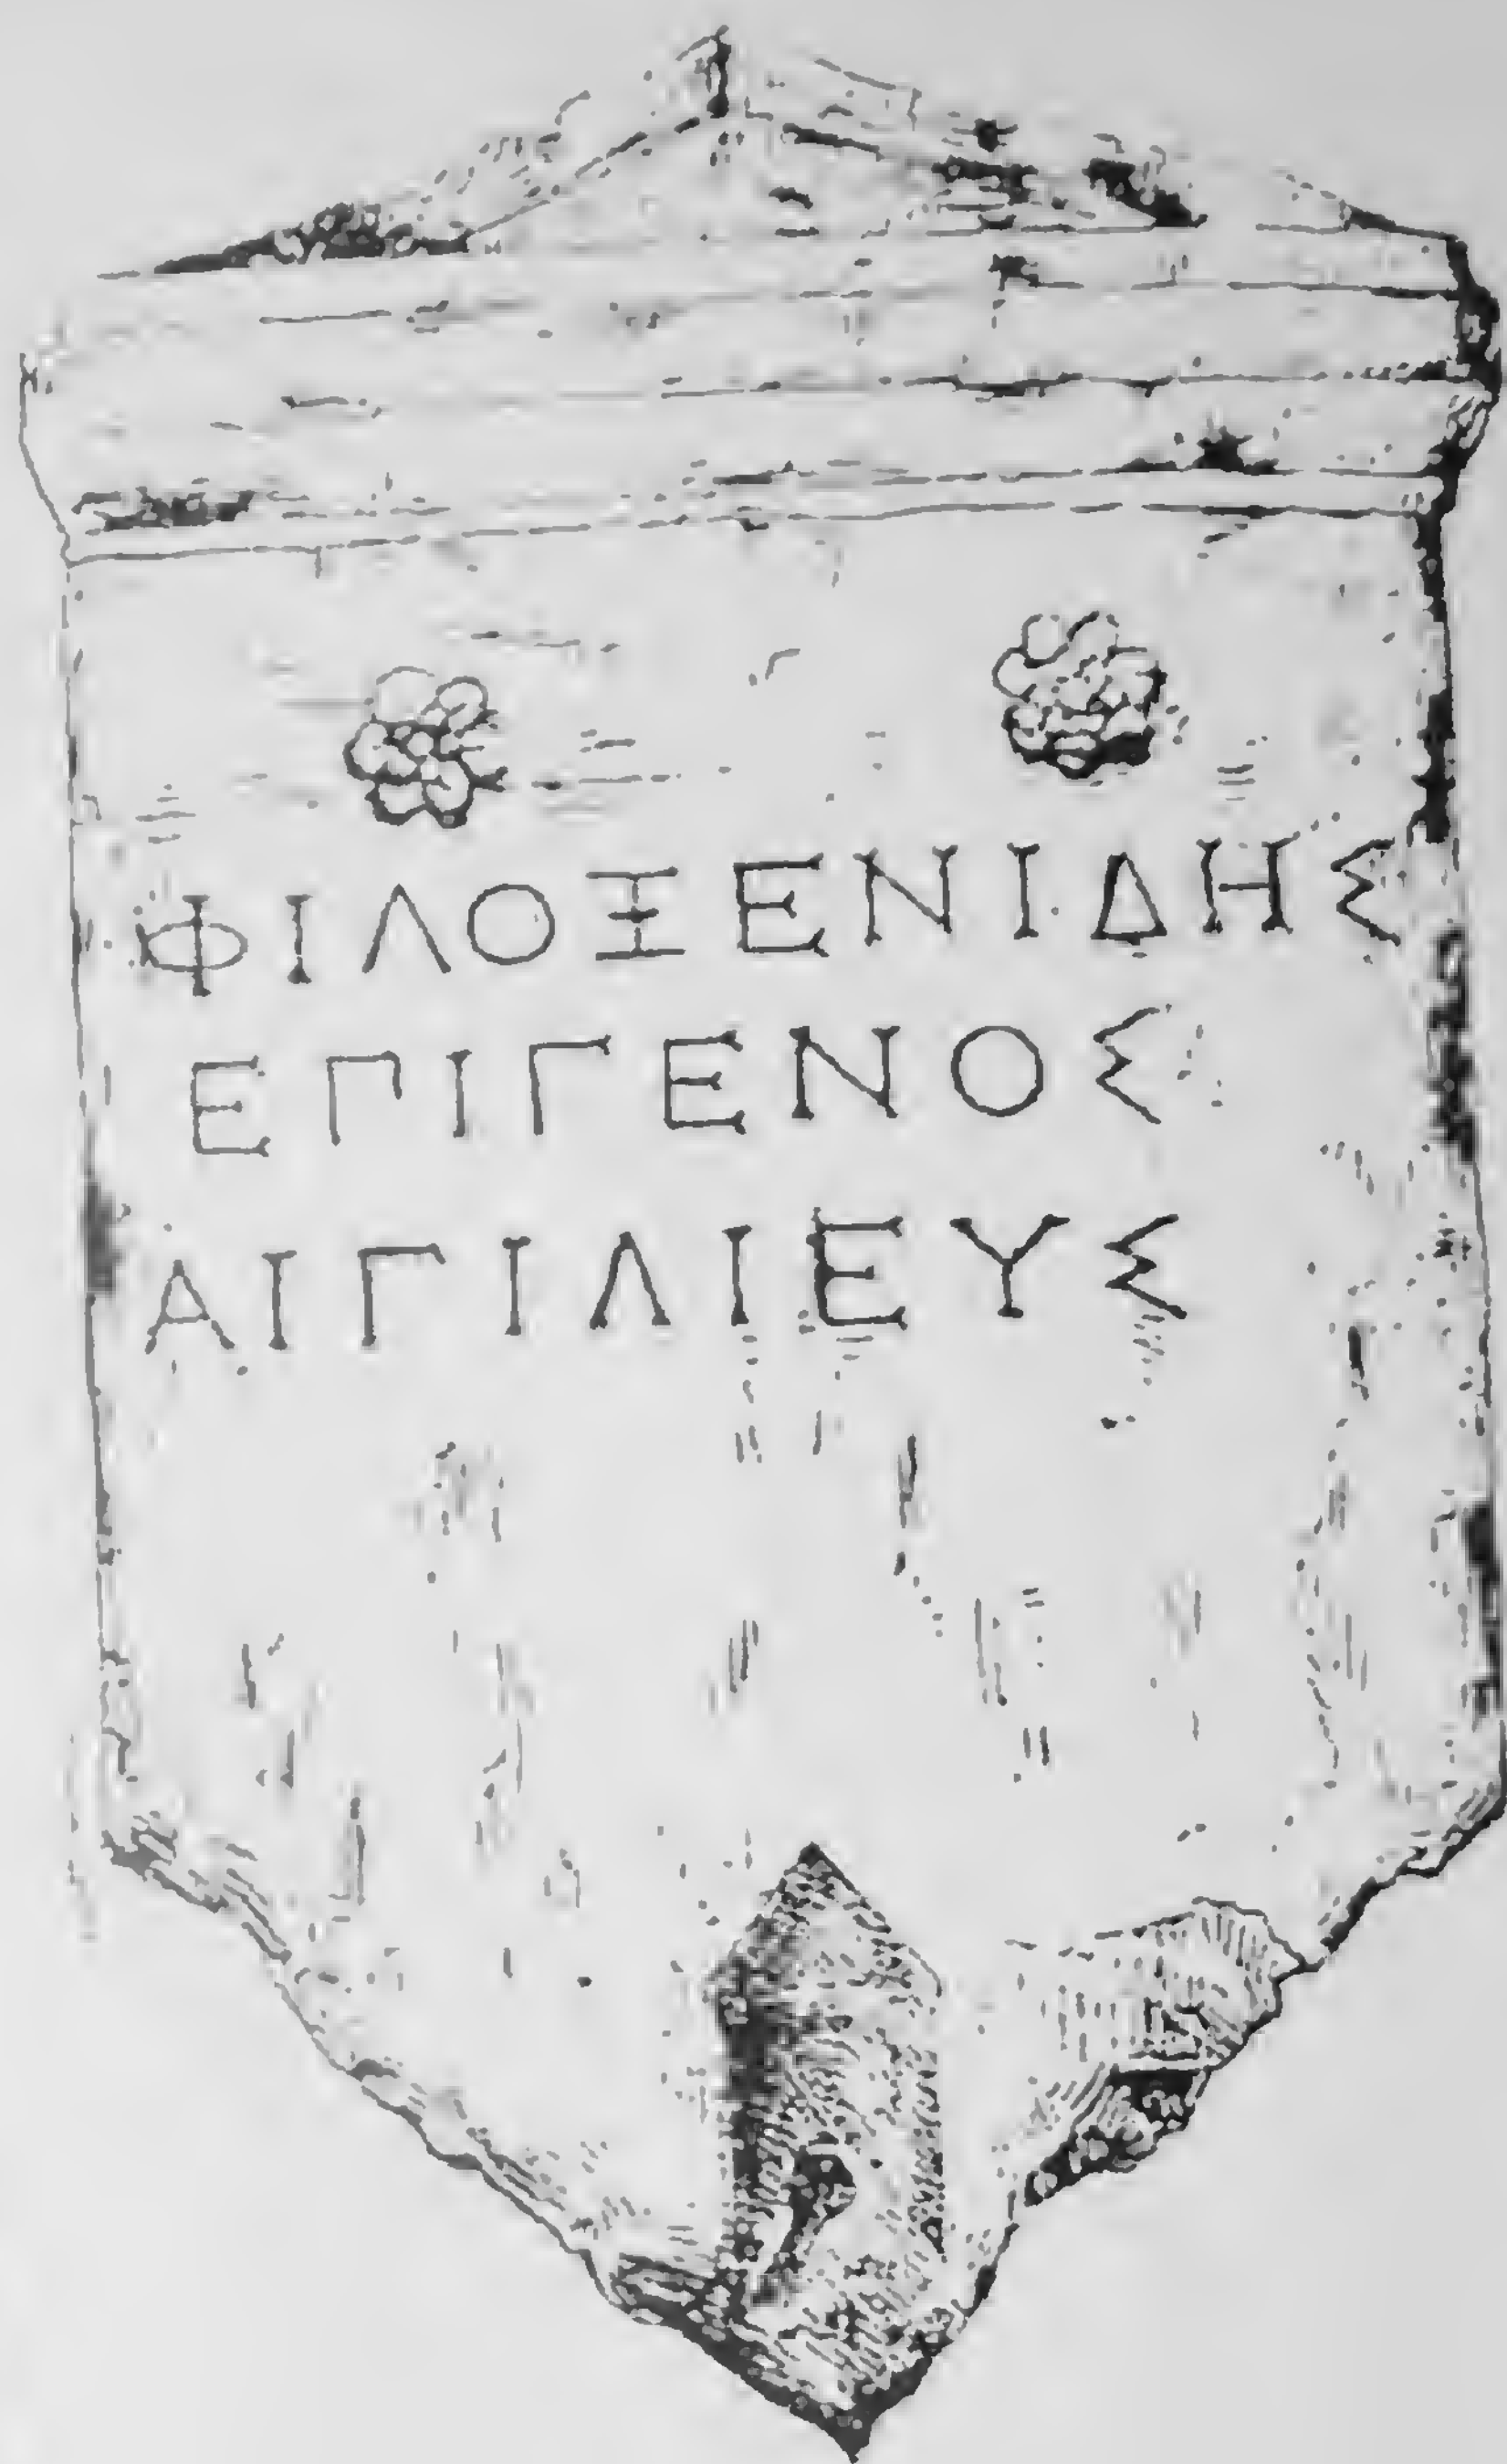 ΦΙΛΟΞΕΝΙΔΗΣ
ΕΠΙΓΕΝΟΣ
ΑΙΓΙΛΙΕΥΣ